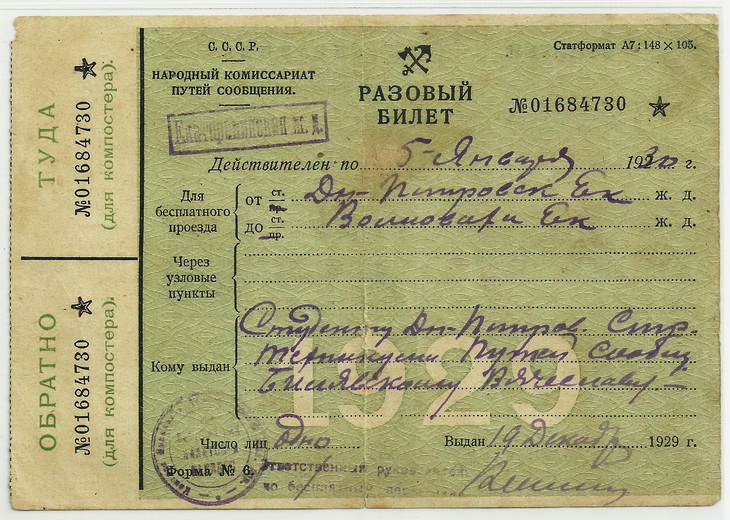 ТУДА
№01684730
(для компостера).
ОБРАТНО
№01684730
(для компостера).
С. С. С. Р.
НАРОДНЫЙ КОМИССАРИАТ
ПУТЕЙ СООБЩЕНИЯ.
Екатерининская ж. д.
РАЗОВЫЙ
БИЛЕТ
Статформат А7: 148 × 105.
№01684730
Действителен по 5-Января 1930 г.
Для бесплатного проезда
от ст. пр. Дн-Петровск Ек ж. д.
до ст. пр. Волноваха Ек ж. д.
Через
узловые
пункты
Кому выдан
Студенту Дн-Петров. Стр.
Путей Сообщ
Вячеславу
1929
Число лиц одно
Выдан 19 Декабр 1929 г.
Форма № 6.
Ответственный руковод
по